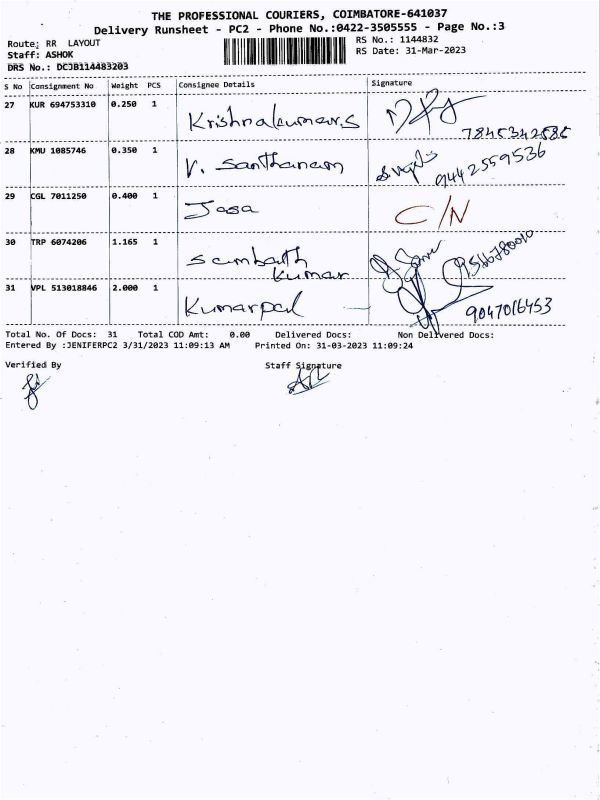 THE PROFESSIONAL COURIERS, COIMBATORE-641037
Delivery Runsheet - PC2 - Phone No.:0422-3505555 - Page No.:3
Route: RR LAYOUT
RS No.: 1144832
Staff: ASHOK
RS Date: 31-Mar-2023
DRS No.: DCJB114483203
S No Consignment No Weight PCS Consignee Details Signature
27 KUR 694753310 0.250 1 Krishnakumar.S
28 KMU 1085746 0.350 1 V. Santhanam 9442559536
29 CGL 7011250 0.400 1 Jasa C/N
30 TRP 6074206 1.165 1 Sambath Kumar
31 VPL 513018846 2.000 1 Kumarpal 9047016453
Total No. Of Docs: 31 Total COD Amt: 0.00 Delivered Docs: Non Delivered Docs:
Entered By :JENIFERPC2 3/31/2023 11:09:13 AM Printed On: 31-03-2023 11:09:24
Verified By Staff Signature